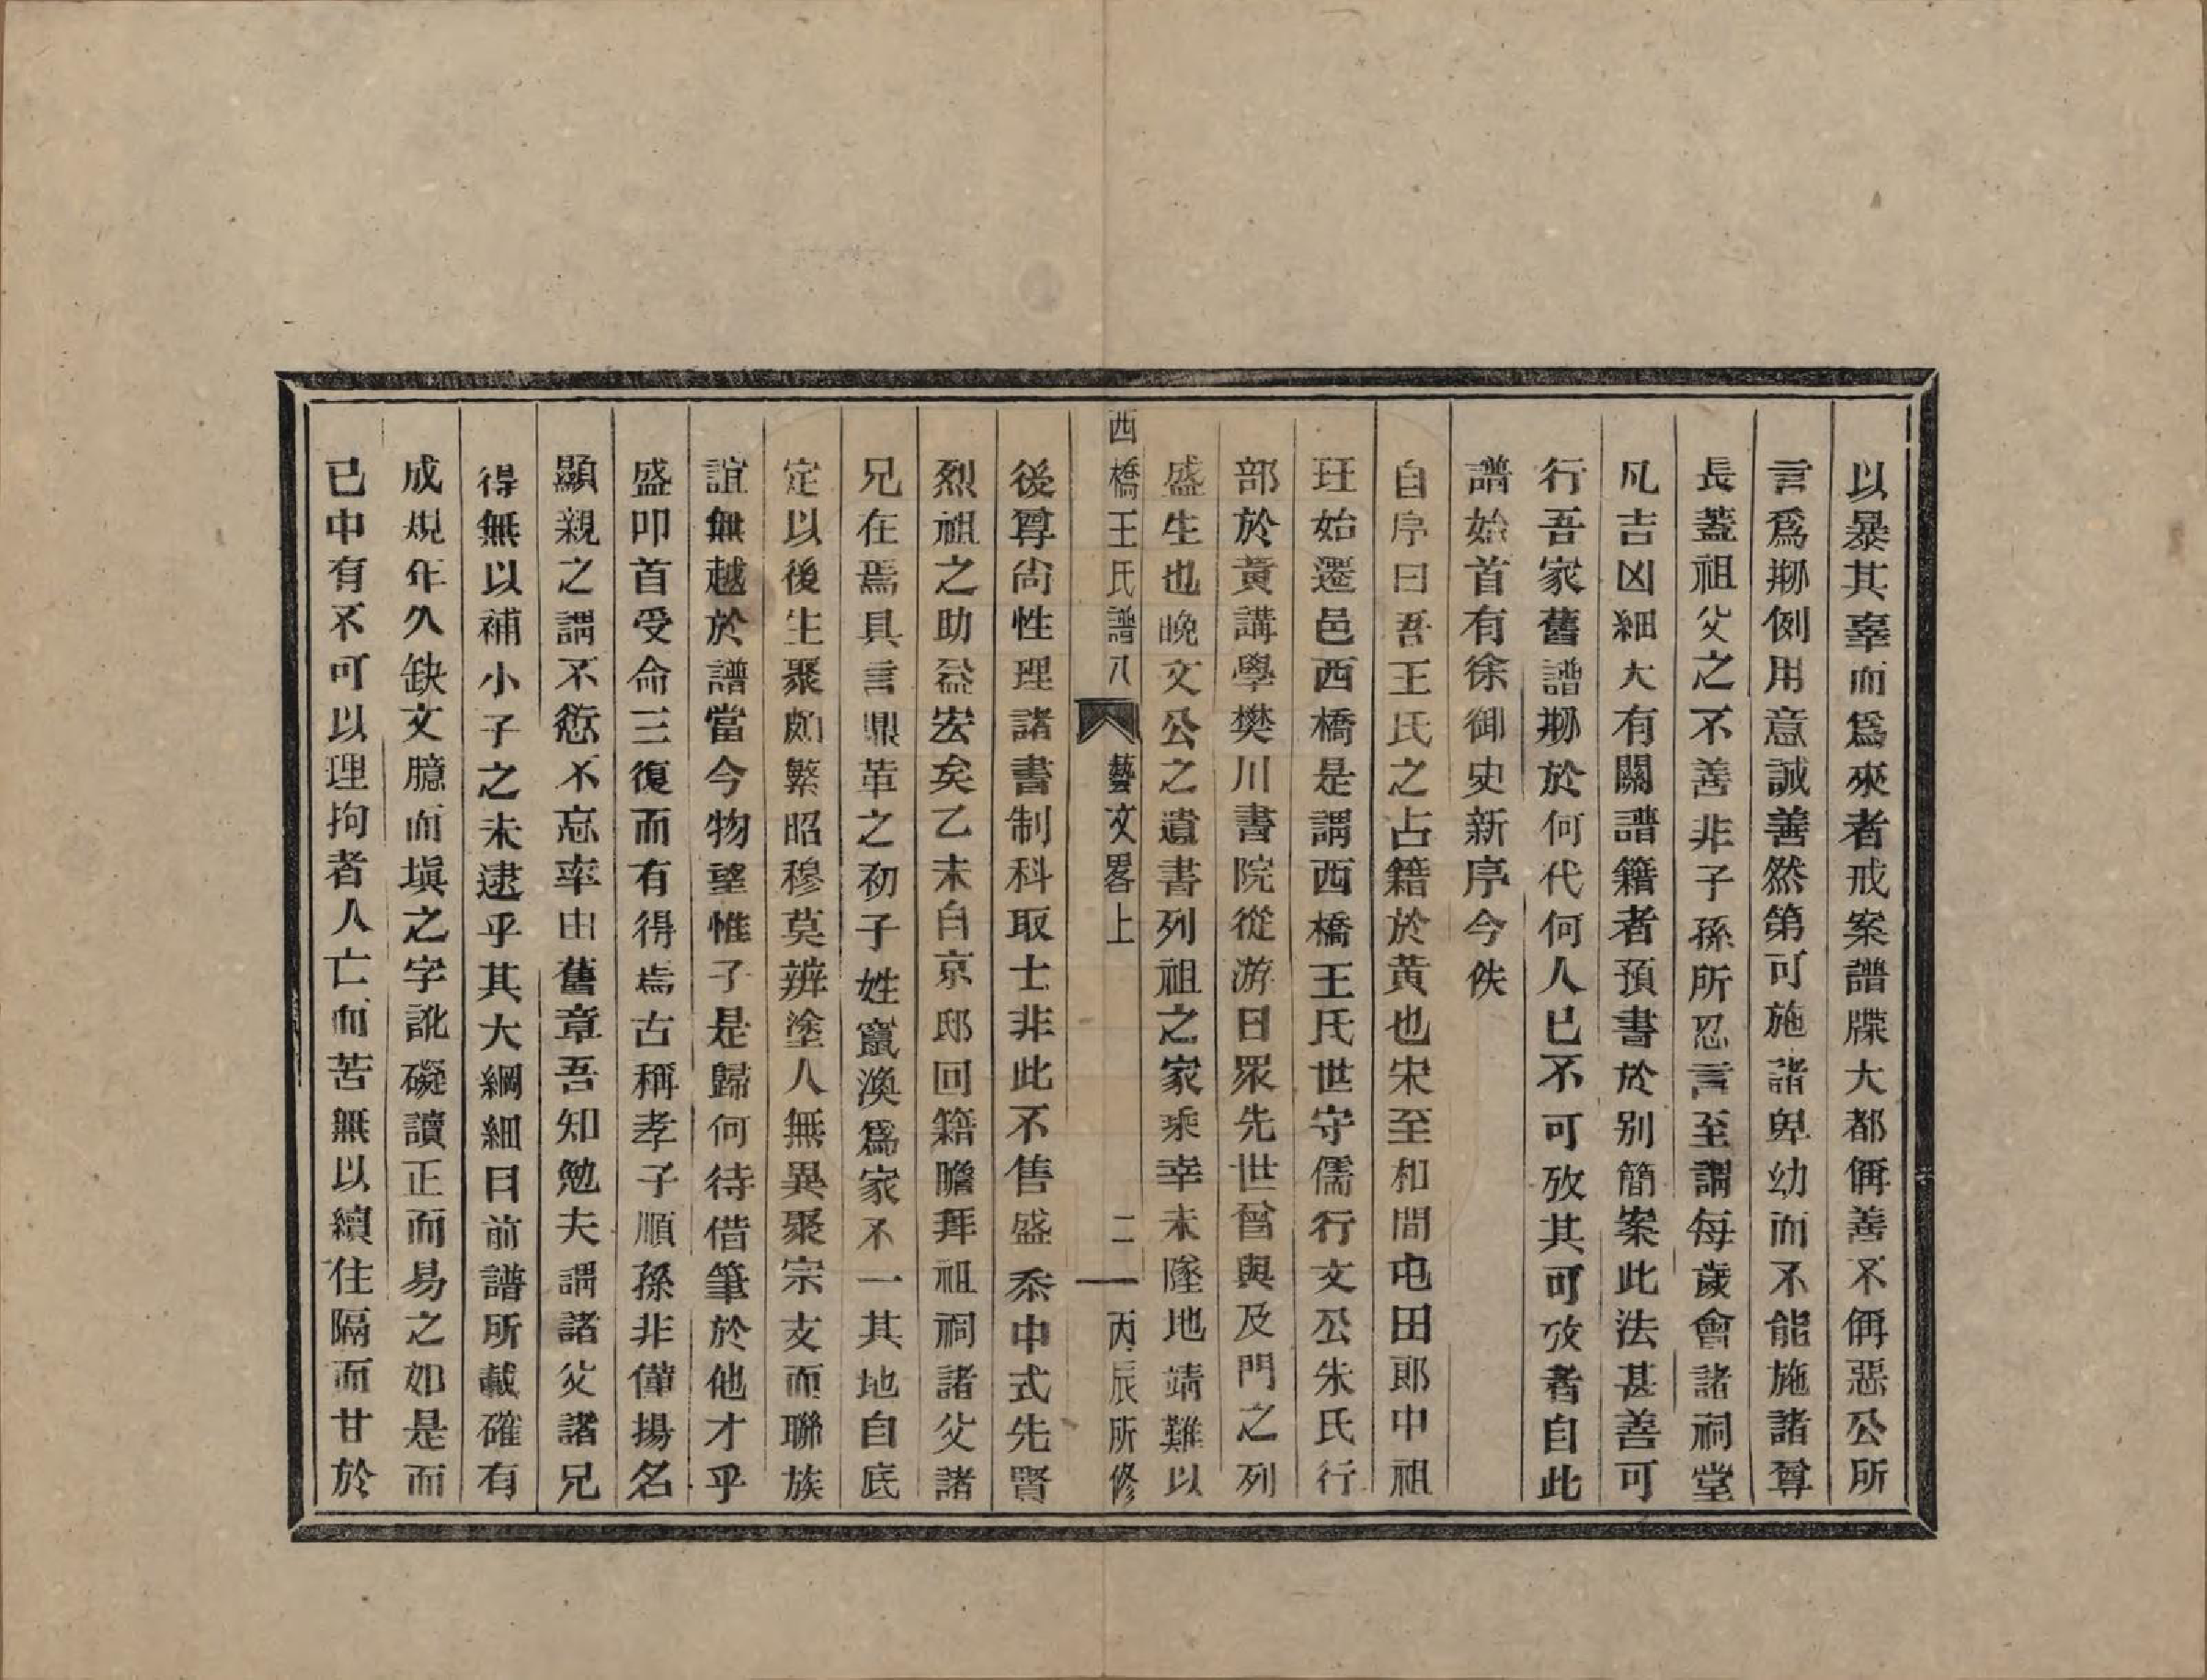 以暴其辜而爲來者戒案譜牒大都偁善不偁惡公所
言爲刱例用意誠善然第可施諸卑幼而不能施諸尊
長蓋祖父之不善非子孫所忍言至謂每歲會諸祠堂
凡吉凶細大有關譜籍者預書於别簡案此法甚善可
行吾家舊譜刱於何代何人已不可攷其可攷者自此
譜始首有徐御史新序今佚
自序曰吾王氏之占籍於黄也宋至和間屯田郎中祖
玨始遷邑西橋是謂西橋王氏世守儒行文公朱氏行
部於黄講學樊川書院從游日眾先世曾與及門之列
盛生也晚文公之遺書列祖之家乘幸未墜地靖難以
西橋王氏譜八 藝文畧上 二 丙辰所修
後尊尙性理諸書制科取士非此不售盛忝中式先賢
烈祖之助益宏矣乙未自京邸回籍瞻拜祖祠諸父諸
兄在焉具言鼎革之初子姓竄渙爲家不一其地自底
定以後生聚頗繁昭穆莫辨塗人無異聚宗支而聯族
誼無越於譜當今物望惟子是歸何待借筆於他才乎
盛叩首受命三復而有得焉古稱孝子順孫非僅揚名
顯親之謂不愆不忘率由舊章吾知勉夫謂諸父諸兄
得無以補小子之未逮乎其大綱細目前譜所載確有
成規年久缺文臆而塡之字訛礙讀正而易之如是而
已中有不可以理拘者人亡而苦無以續住隔而甘於